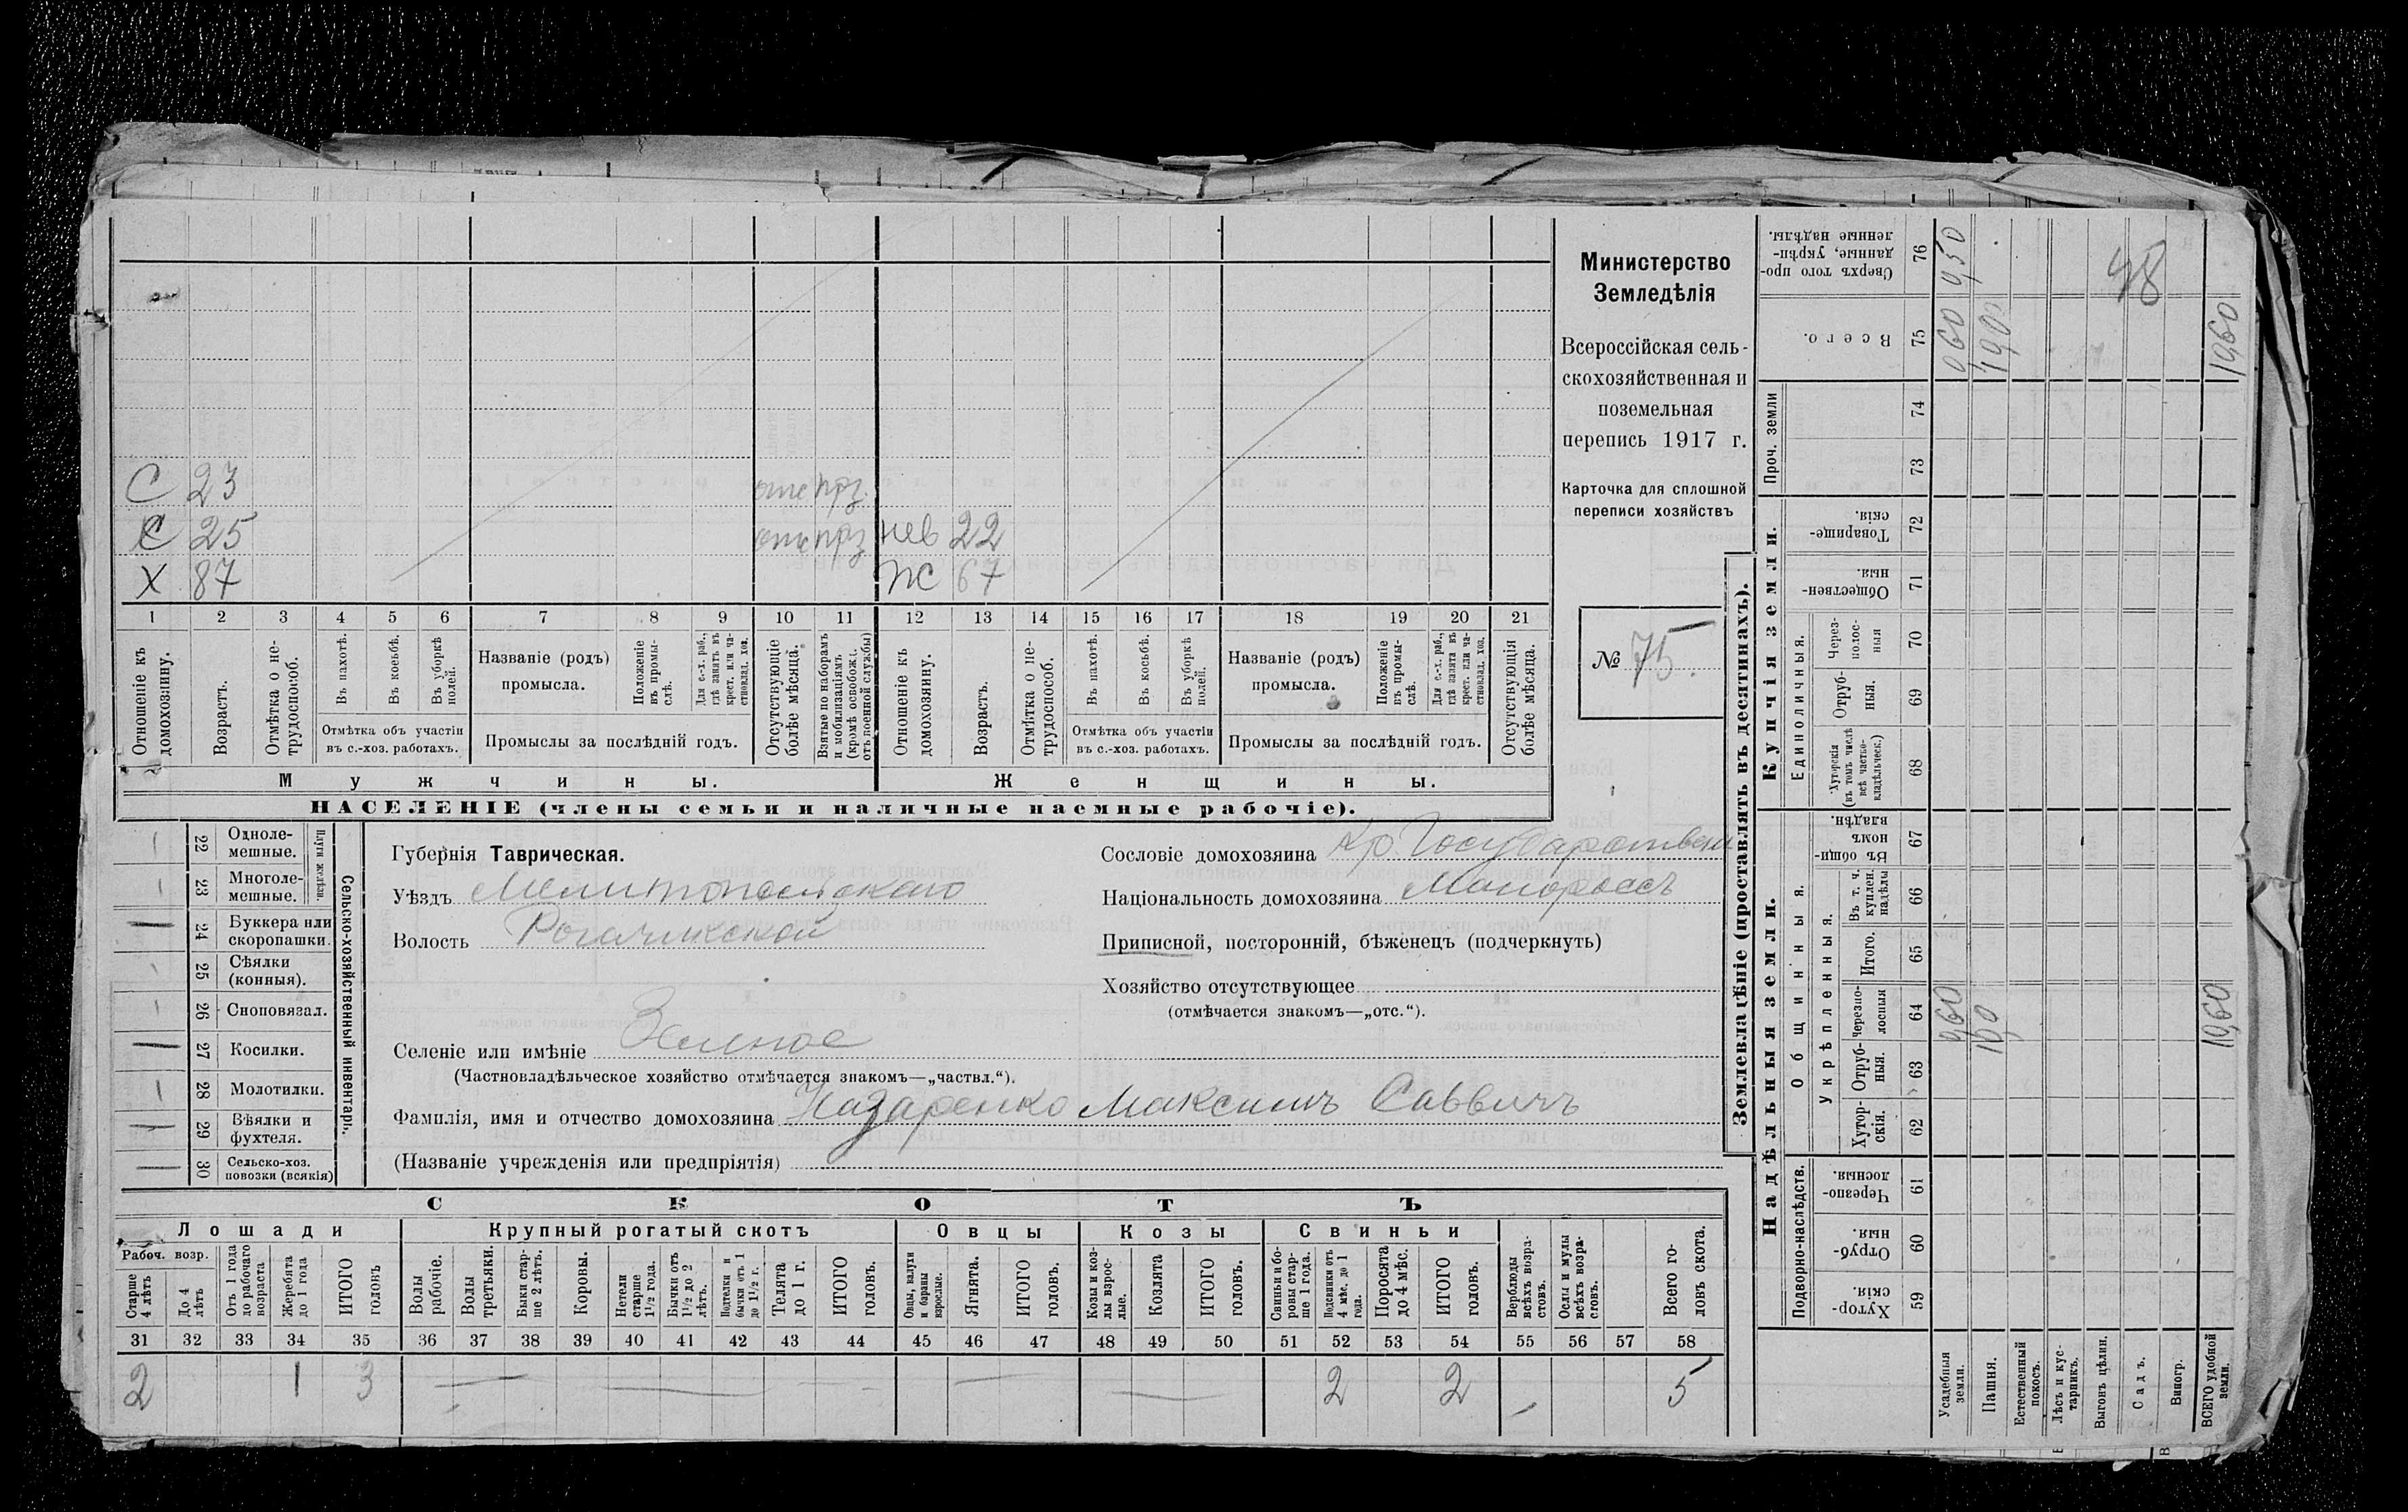 С 23 отс прз.
С 25 отс прз нев 22
Х 87 ж 67
1 2 3 4 5 6 7 8 9 10 11 12 13 14 15 16 17 18 19 20 21
Отношеніе къ домохозяину.
Возрастъ.
Отмѣтка о нетрудоспособ.
Въ пахотѣ.
Въ косьбѣ.
Въ уборкѣ полей.
Отмѣтка объ участіи въ с.-хоз. работахъ.
Названіе (родъ) промысла.
Положеніе въ промыслѣ.
Для с.-х. раб., гдѣ занятъ въ крест. или частновлад. хоз.
Промыслы за послѣдній годъ.
Отсутствующіе болѣе мѣсяца.
Взятые по наборамъ и мобилизаціямъ (кромѣ освобожд. отъ военной службы)
Отношеніе къ домохозяину.
Возрастъ.
Отмѣтка о нетрудоспособ.
Въ пахотѣ.
Въ косьбѣ.
Въ уборкѣ полей.
Отмѣтка объ участіи въ с.-хоз. работахъ.
Названіе (родъ) промысла.
Положеніе въ промыслѣ.
Для с.-х. раб., гдѣ занята въ крест. или частновлад. хоз.
Промыслы за послѣдній годъ.
Отсутствующія болѣе мѣсяца.
Мужчины. Женщины.
НАСЕЛЕНІЕ (члены семьи и наличные наемные рабочіе).
Министерство
Земледѣлія
Всероссійская сель-
скохозяйственная и
поземельная
перепись 1917 г.
Карточка для сплошной
переписи хозяйствъ
№ 75.
Сельско-хозяйственный инвентарь.
Плуги желѣзн.
22 Одноле-
мешные.
23 Многоле-
мешные.
24 Буккера или
скоропашки.
25 Сѣялки
(конныя).
26 Сноповязал.
27 Косилки.
28 Молотилки.
29 Вѣялки и
фухтеля.
30 Сельско-хоз.
повозки (всякія)
Губернія Таврическая.
Уѣздъ Мелитопольскаго
Волость Рогачикской
Селеніе или имѣніе Зеленое
(Частновладѣльческое хозяйство отмѣчается знакомъ—„частвл.“).
Фамилія, имя и отчество домохозяина Назаренко Максимъ Саввичъ
(Названіе учрежденія или предпріятія)
Сословіе домохозяина Кр. Государствен
Національность домохозяина Малороссъ
Приписной, посторонній, бѣженецъ (подчеркнуть)
Хозяйство отсутствующее
(отмѣчается знакомъ—„отс.“).
СКОТЪ
Лошади Крупный рогатый скотъ Овцы Козы Свиньи
Рабоч. возр.
Старше 4 лѣтъ
До 4 лѣтъ
Отъ 1 года до рабочаго возраста
Жеребята до 1 года
ИТОГО головъ
Волы рабочіе.
Волы третьяки.
Быки старше 2 лѣтъ.
Коровы.
Нетели старше 1½ года.
Бычки отъ 1½ до 2 лѣтъ.
Подтелки и бычки отъ 1 до 1½ г.
Телята до 1 г.
ИТОГО головъ.
Овцы, валухи и бараны взрослые.
Ягнята.
ИТОГО головъ.
Козы и козлы взрослые.
Козлята
ИТОГО головъ.
Свиньи и боровы старше 1 года.
Подсвинки отъ 4 мѣс. до 1 года.
Поросята до 4 мѣс.
ИТОГО головъ.
Верблюды всѣхъ возрастовъ.
Ослы и мулы всѣхъ возрастовъ.
Всего головъ скота.
31 32 33 34 35 36 37 38 39 40 41 42 43 44 45 46 47 48 49 50 51 52 53 54 55 56 57 58
2 1 3 2 2 5
Землевладѣніе (проставлять въ десятинахъ).
Надѣльныя земли. Купчія земли. Проч. земли
Подворно-наслѣдств.
Общинныя.
Укрѣпленныя.
Единоличныя.
Хуторскія. 59
Отрубныя. 60
Черезполосныя. 61
Хуторскія. 62
Отрубныя. 63
Черезполосныя 64
Итого. 65
Въ т. ч. куплен. надѣлы 66
Въ общинномъ владѣн. 67
Хуторскія (въ томъ числѣ всѣ частновладѣльческ.) 68
Отрубныя. 69
Черезполосныя 70
Общественныя. 71
Товарищескія. 72
73
74
Всего. 75
Сверхъ того проданные, укрѣпленные надѣлы. 76
Усадебныя земли. 0,60 0,60 9,50
Пашня. 10,0 10,0
Естественный покосъ.
Лѣсъ и кустарникъ.
Выгонъ цѣлин.
Садъ.
Виногр.
ВСЕГО удобной земли. 10,60 10,60
48